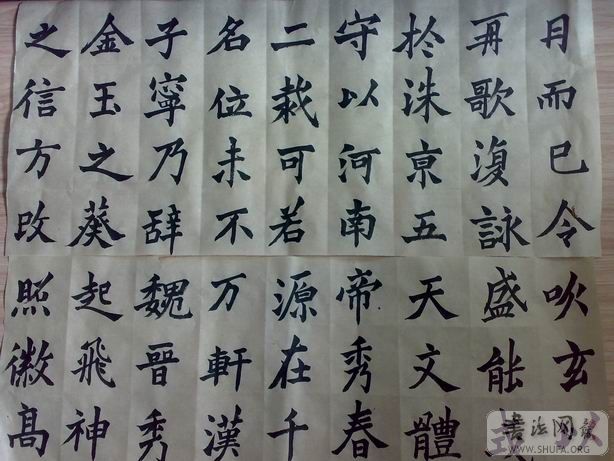 月而已令
再歌復詠
於洙亰五
守以河南
二栽可若
名位未不
子寧乃辞
金玉之葵
之信方改
吹玄
盛能
天文體
帝秀春
源在千
万軒漢
魏晉秀
起飛神
照徽高
书法网
WWW.SHUFA.ORG